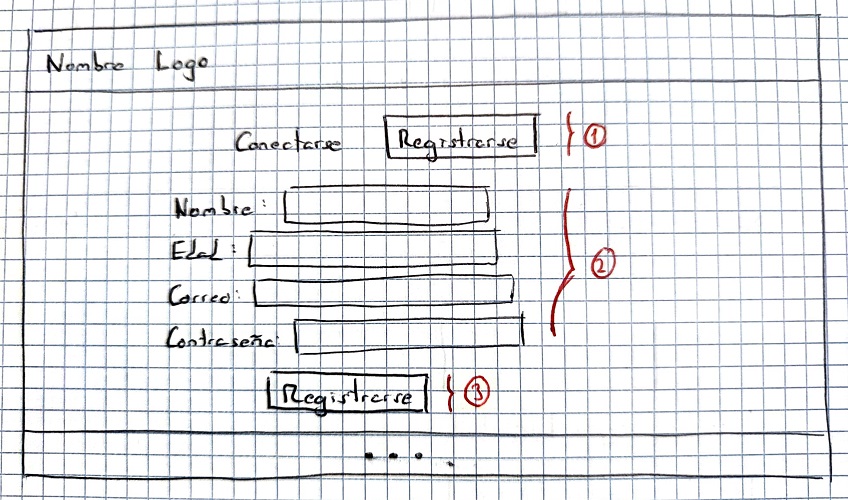 Nombre Logo
Conectarse Registrarse } ①
Nombre:
Edad:
Correo:
Contraseña:
} ②
Registrarse } ③
....